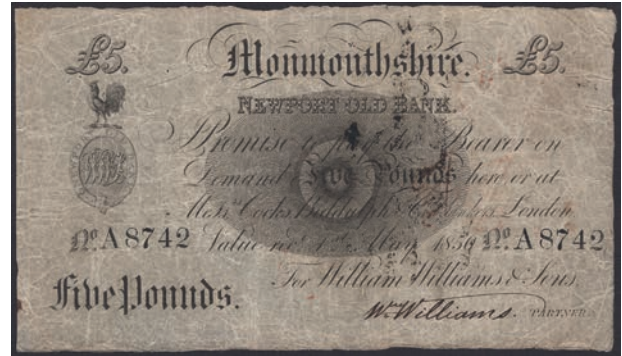 £5. Monmouthshire. £5.
NEWPORT OLD BANK.
I Promise to pay the Bearer on
Demand Five Pounds here or at
Messrs Cocks Biddulph & Co Bankers London
No. A 8742 Value recd 1st May 1850 No. A 8742
For William Williams & Sons,
Five Pounds.
Wm Williams. PARTNER